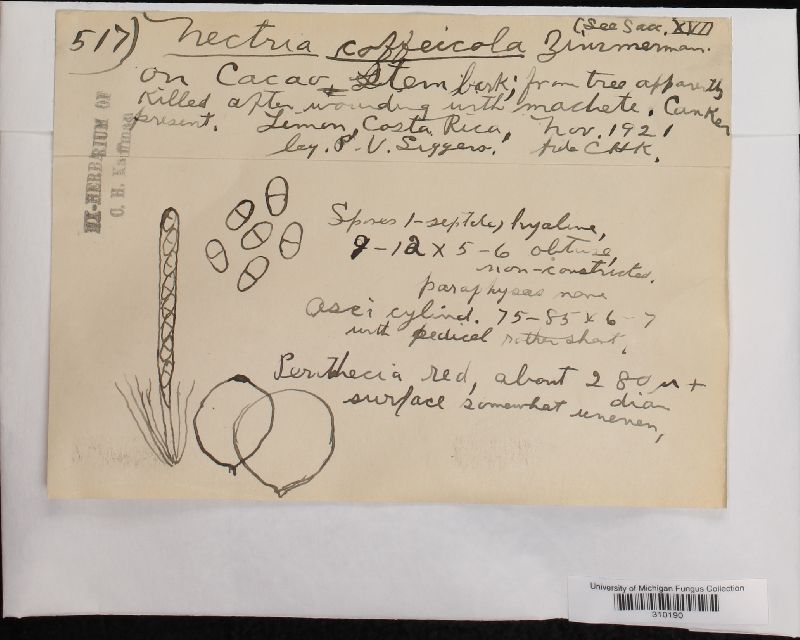 517) Nectria coffeicola Zimmerman. (See Sacc. XVII
on Cacao, Stem bark; from tree apparently
killed after wounding with machete. Canker
present. Limon, Costa Rica, Nov. 1921
leg. P. V. Siggers. fide CHK.
EX-HERBARIUM OF
C. H. Kauffman
Spores 1-septate, hyaline,
9-12 x 5-6 obtuse,
non-constricted.
paraphyses none
Asci cylind. 75-85 x 6-7
with pedicel rather short.
Perithecia red, about 280 µ +
diam
surface somewhat uneven,
University of Michigan Fungus Collection
310190